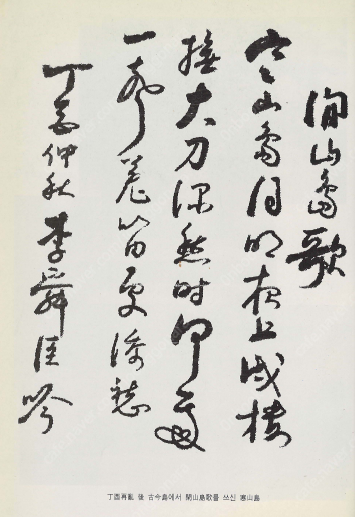 閑山島歌
寒山島月明夜上戍樓
撫大刀深愁時何處
一聲羌笛更添愁
丁酉仲秋 李舜臣吟
丁酉再亂 後 古今島에서 閑山島歌를 쓰신 寒山島